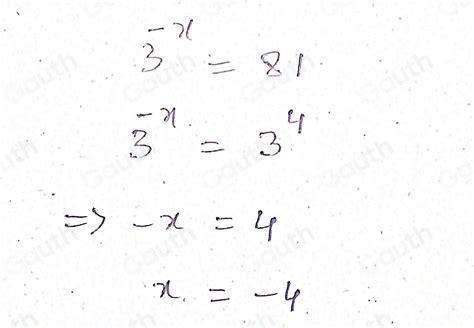 3^{-x} = 81
3^{-x} = 3^4
=> -x = 4
x = -4